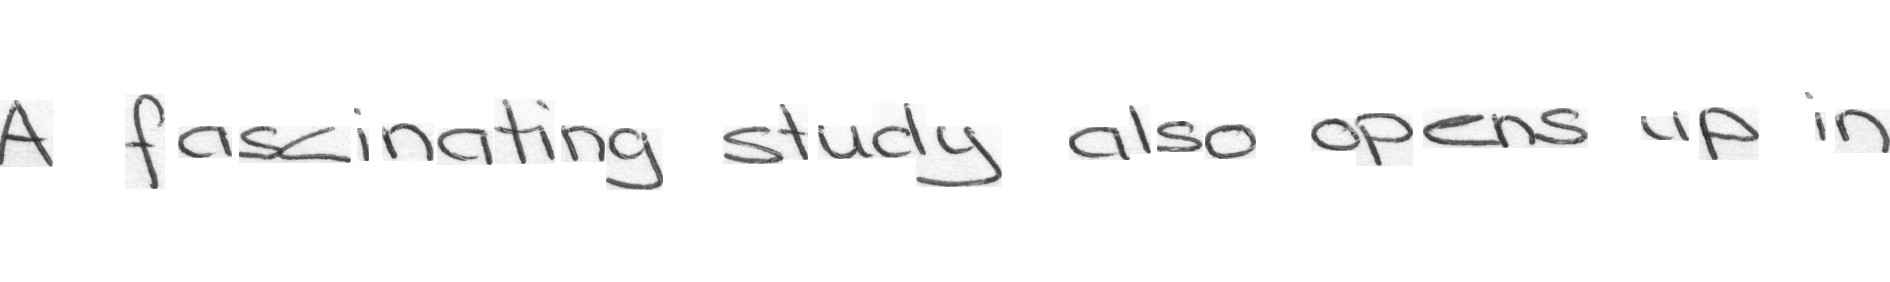 A fascinating study also opens up in